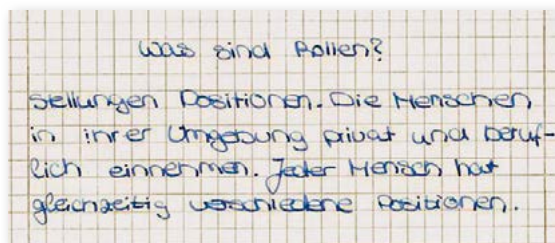 Was sind Rollen?
Stellungen Positionen. Die Menschen
in ihrer Umgebung privat und beruf-
lich einnehmen. Jeder Mensch hat
gleichzeitig verschiedene Positionen.